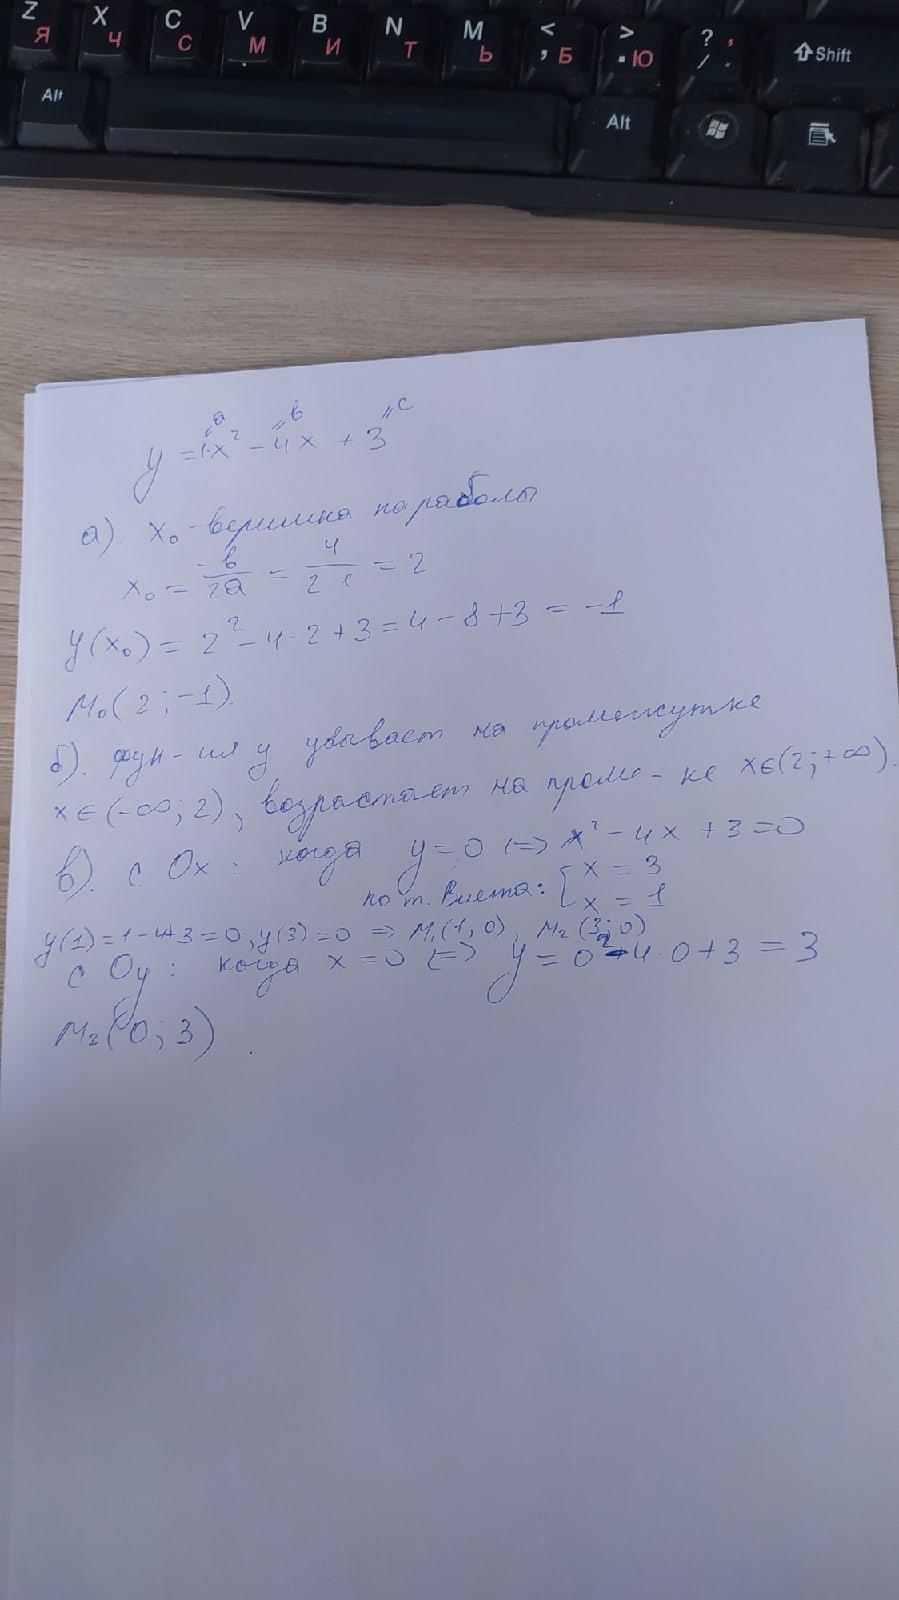 Z Я X Ч C С V М B И N Т M Ь < , Б > . Ю ? / , . ⇧Shift
Alt Alt
a в с
y = 1·x² - 4x + 3
а). x₀ - вершина параболы
x₀ = -в/2a = 4/2·1 = 2
y(x₀) = 2² - 4·2 + 3 = 4 - 8 + 3 = -1
M₀(2; -1).
б). фун-ия y убывает на промежутке
x∈(-∞; 2), возрастает на пром-ке x∈(2; +∞).
в). с Ox: когда y=0 <=> x² - 4x + 3 = 0
по т. Виета: [x = 3
x = 1
y(1) = 1-4+3=0; y(3)=0 => M₁(1; 0); M₂(3; 0)
с Oy: когда x=0 <=> y = 0² - 4·0 + 3 = 3
M₂(0; 3)